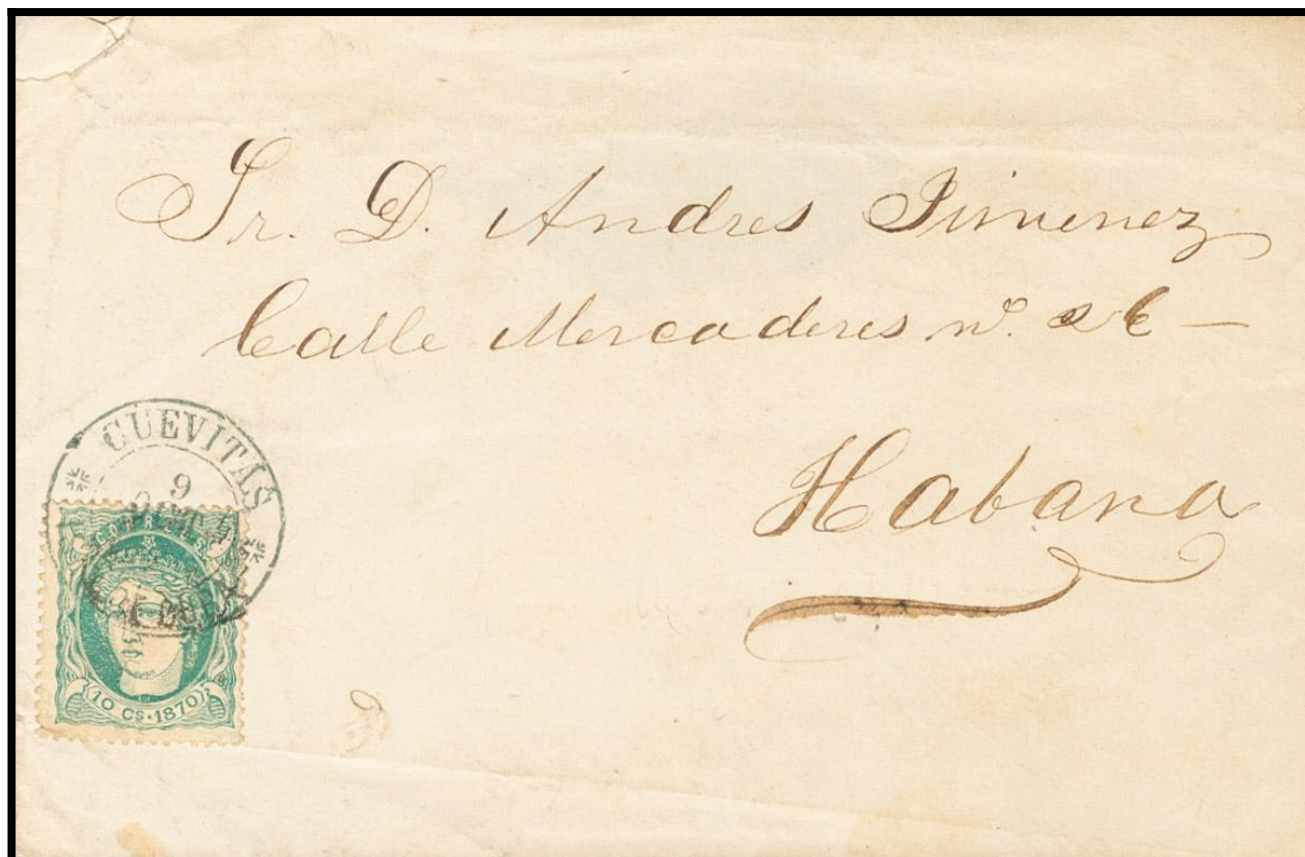 Sr. D. Andres Jimenez
Calle Mercaderes nº.
Habana
CUEVITAS
9
CORREOS
10 CS. 1870